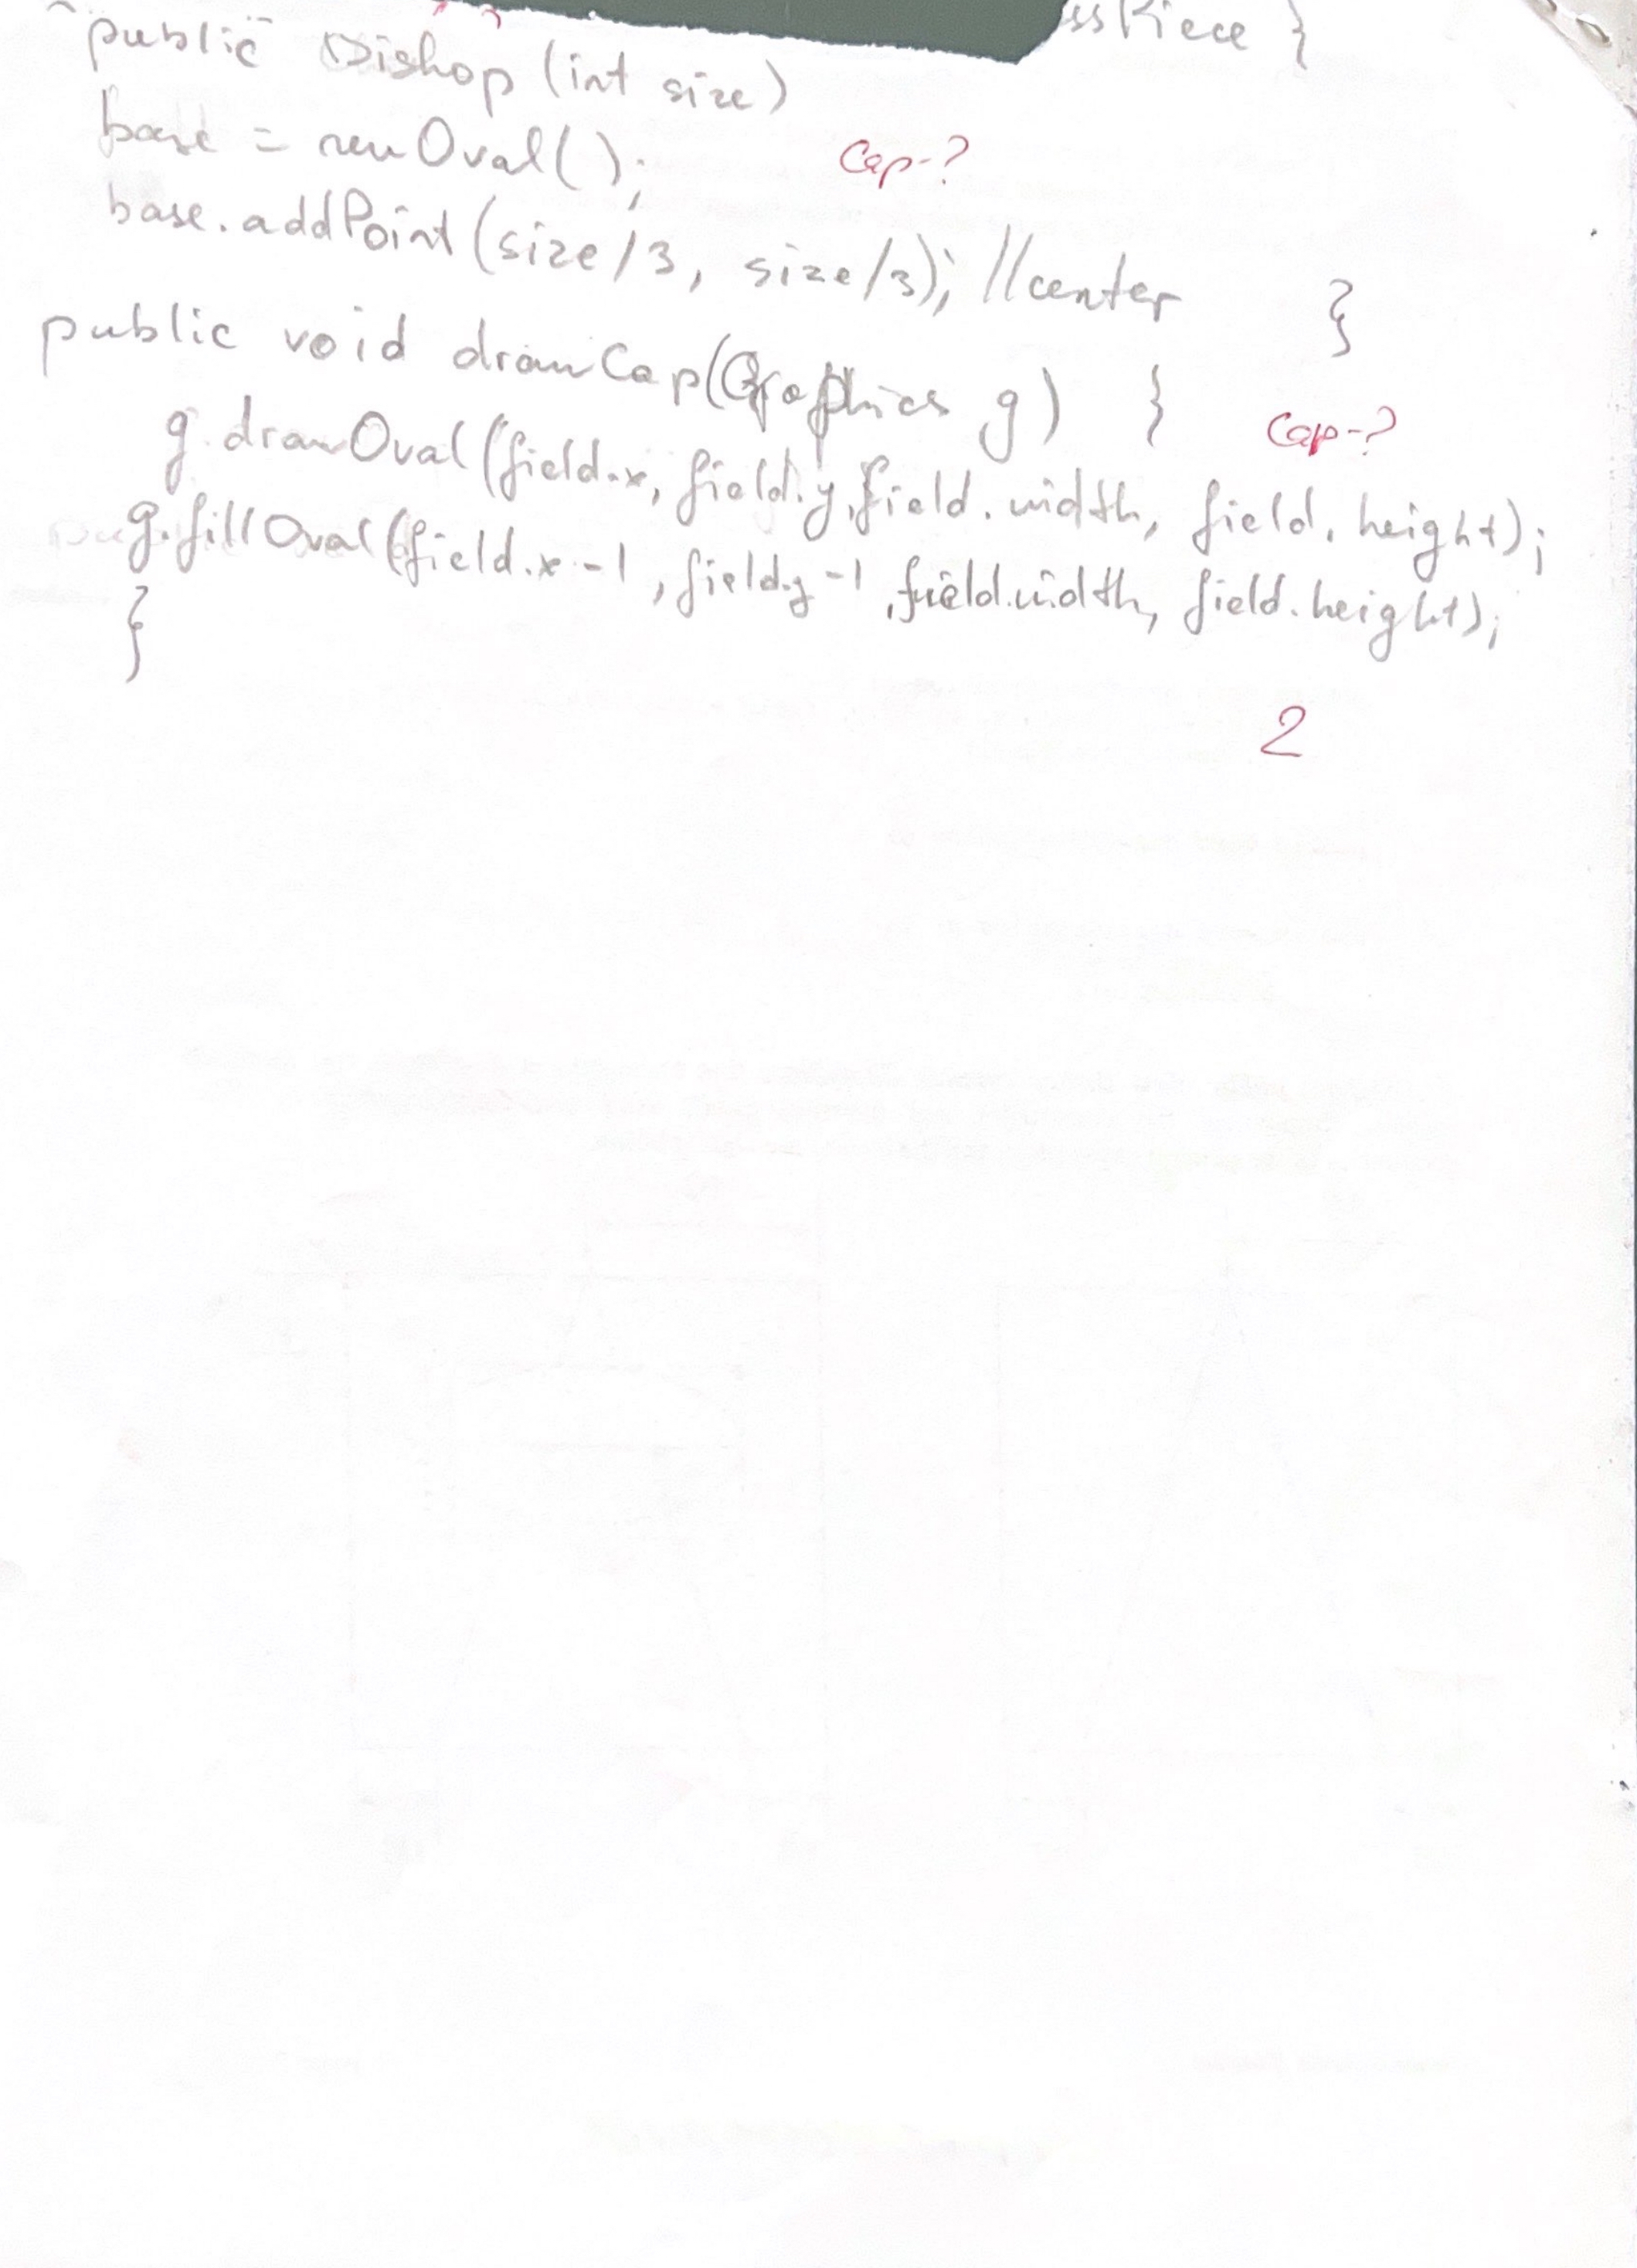 ssPiece }
public Bishop (int size)
base = new Oval();
Cap-?
base.addPoint(size/3, size/3); //center }
public void drawCap(Graphics g) }
Cap-?
g.drawOval(field.x, field.y, field.width, field.height);
g.fillOval(field.x-1, field.y-1, field.width, field.height);
}
2